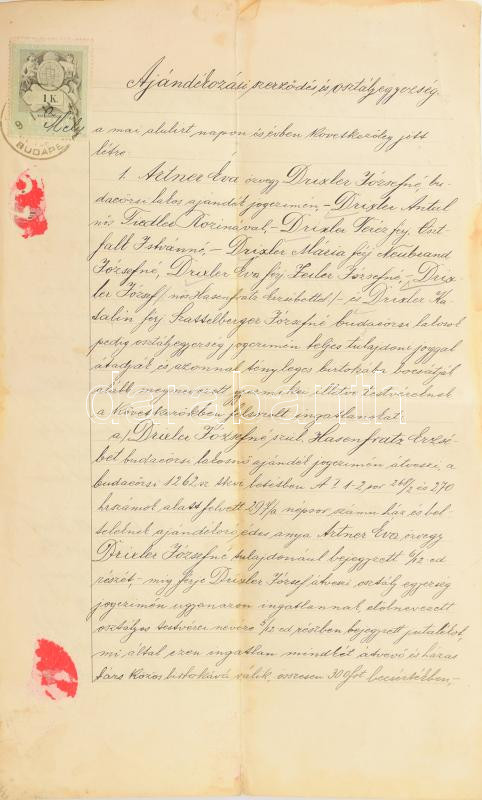 1 K.
BUDAPE
Ajándékozási szerződés és osztályegyezség.
a mai alulírt napon és évben következőleg jött
létre.
1. Artner Éva özvegy Drixler Józsefné bu-
daeörsi lakos ajándék jogczimén, – Drixler Antal
nős Fiedler Rozinával, – Drixler Teréz férj. Ost-
falt Istvánné, – Drixler Mária férj. Neubrand
Józsefné, Drixler Éva férj. Zeiler Józsefné, – Drix-
ler József /nős Hasenfratz Erzsébettel/ – és Drixler Ka-
talin férj. Szattelberger Józsefné budaeörsi lakosok
pedig osztályegyezség jogczimén teljes tulajdoni joggal
átadják és azonnal tényleges birtokába bocsátják
alább megnevezett gyermekei illetve testvéreiknek
a következőkben felsorolt ingatlanokat
a/ Drixler Józsefné szül. Hasenfratz Erzsé-
bet budaeörsi lakosnő ajándék jogczimén átveszi, a
budaeörsi 1262 sz tkvi betétben A I 1-2 sor 269/2 és 270
hrszámok alatt felvett 207/a népsor számu ház és bel-
teleknek ajándékozó édes anya Artner Éva özvegy
Drixler Józsefné tulajdonául bejegyzett 6/12 ed
részét, – mig férje Drixler József átveszi osztály egyezség
jogczimén ugyanazon ingatlannak elölnevezett
osztályos testvérei nevére 5/12 ed részben bejegyzett jutalékot,
mi által ezen ingatlan mindkét átvevő és házas
társ közös birtokává válik, összesen 300 frt becsértékben, –